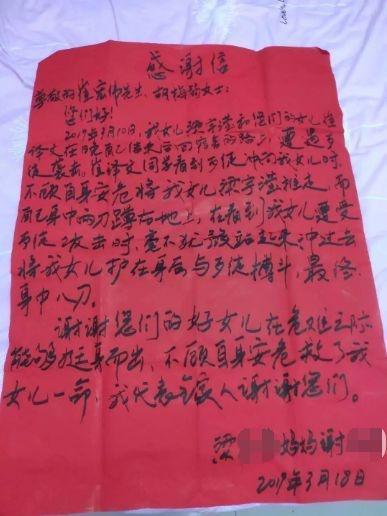 感谢信
尊敬的崔宏伟先生、胡梅菊女士:
您们好!
2019年3月10日,我女儿梁宇滢和您们的女儿崔
译文在晚自习结束后回宿舍的路上,遭遇歹
徒袭击。崔译文同学看到歹徒冲向我女儿时,
不顾自身安危将我女儿梁宇滢推走,而
自己身中两刀蹲在地上,在看到我女儿遭受
歹徒攻击时,毫不犹豫站起来冲过去
将我女儿护在身后与歹徒搏斗,最终
身中八刀。
谢谢您们的好女儿在危难之际
能够挺身而出,不顾自身安危救了我
女儿一命,我代表全家人谢谢您们。
梁 妈妈谢
2019年3月18日